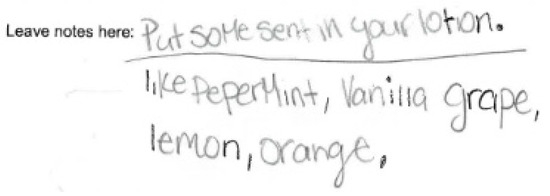 Leave notes here: Put some sent in your lotion.
like Pepermint, Vanilla grape,
lemon, orange,